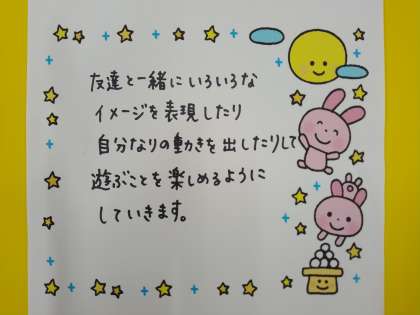 友達と一緒にいろいろな
イメージを表現したり
自分なりの動きを出したりして
遊ぶことを楽しめるように
していきます。